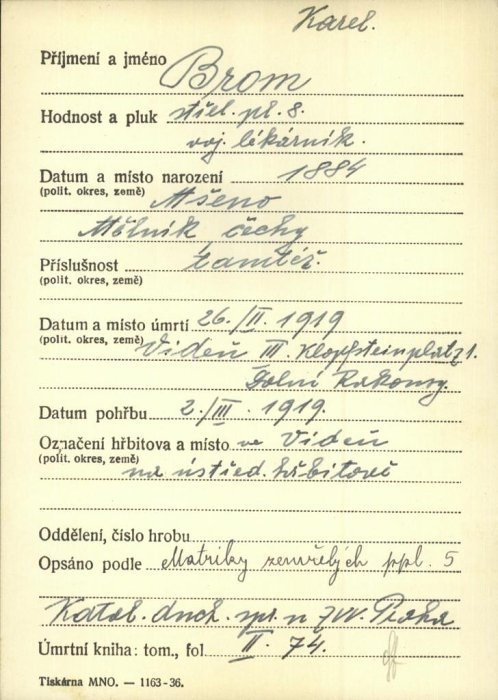 Karel.
Příjmení a jméno Brom
Hodnost a pluk střel. pl. 8.
voj. lékárník.
Datum a místo narození 1884
(polit. okres, země) Mšeno
Mělník, čechy
Příslušnost tamtéž.
(polit. okres, země)
Datum a místo úmrtí 26./II. 1919
(polit. okres, země) Videň III. Klopfsteinplatz 1.
Dolní Rakousy.
Datum pohřbu 2./III. 1919.
Označení hřbitova a místo ve Vídeň
(polit. okres, země)
na ústřed. hřbitově
Oddělení, číslo hrobu
Opsáno podle Matriky zemřelých ppl. 5
Katol. duch. spr. u ZVV. Praha
Úmrtní kniha: tom., fol II. 74.
Tiskárna MNO. — 1163-36.